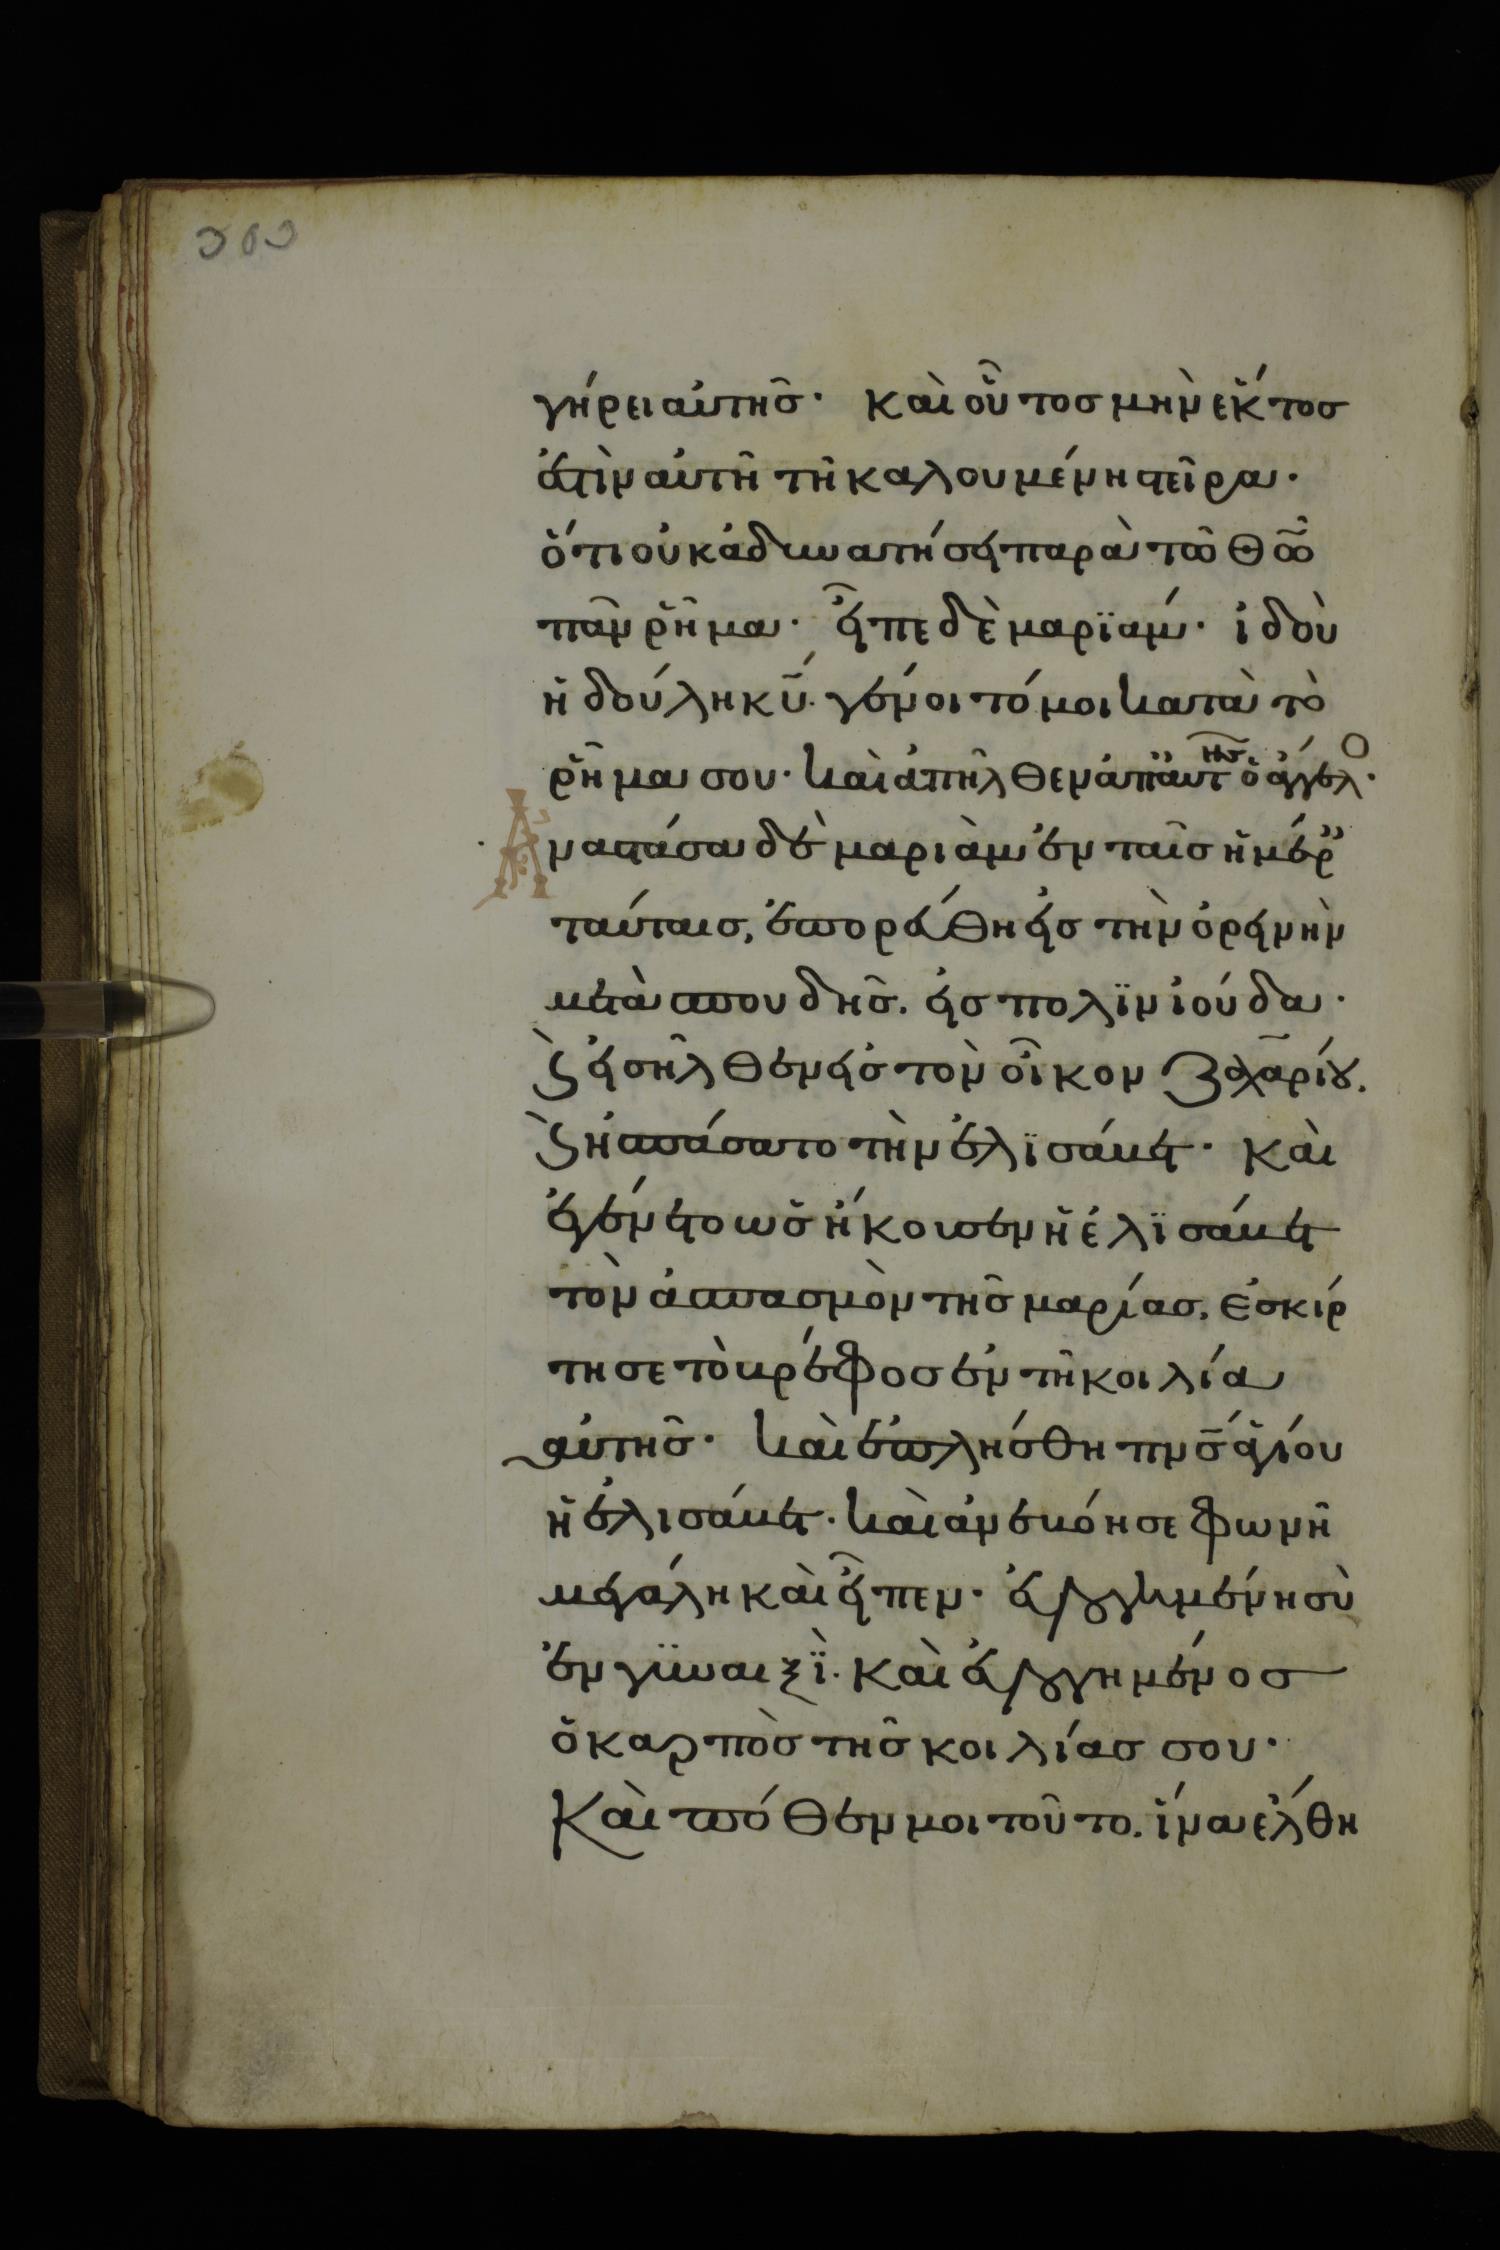 γήρει αὐτῆς· καὶ οὗτος μὴν ἕκτος
ἐστὶν αὐτῇ τῇ καλουμένῃ στείρα·
ὅτι οὐκ ἀδυνατήσει παρὰ τῶ θῶ
πᾶν ῥῆμα· εἶπε δὲ μαρϊάμ· ἰδοὺ
ἡ δούλη κυ· γένοιτό μοι κατὰ τὸ
ῥῆμα σου· καὶ ἀπῆλθεν ἀπ αὐτῆς ὁ ἄγγελο·
Ἀναστάσα δὲ μαριὰμ ἐν ταῖς ἡμέρ
ταύταις, ἐπορεύθη εἰς τὴν ὀρεινὴν
μετὰ σπουδῆς. εἰς πολϊν ἰούδα·
ϗ εἰσῆλθεν εἰς τὸν οἶκον ζαχαρίου.
ϗ ἠσπάσατο τὴν ἐλϊσάβετ· καὶ
ἐγένετο ὡς ἤκουσεν ἡ ἐλϊσάβετ
τὸν ἀσπασμὸν τῆς μαρίας, ἐσκίρ
τησε τὸ βρέφος ἐν τῇ κοιλία
αὐτῆς· καὶ ἐπλήσθη πνς ἁγίου
ἡ ἐλισάβετ· καὶ ἀνεβόησε φωνῆ
μεγάλη καὶ εἶπεν· εὐλογημένη σὺ
ἐν γϋναιξϊ· καὶ εὐλογημένος
ὁ καρπὸς τῆς κοιλίας σου·
Καὶ πόθεν μοι τοῦτο. ἵνα ἔλθη